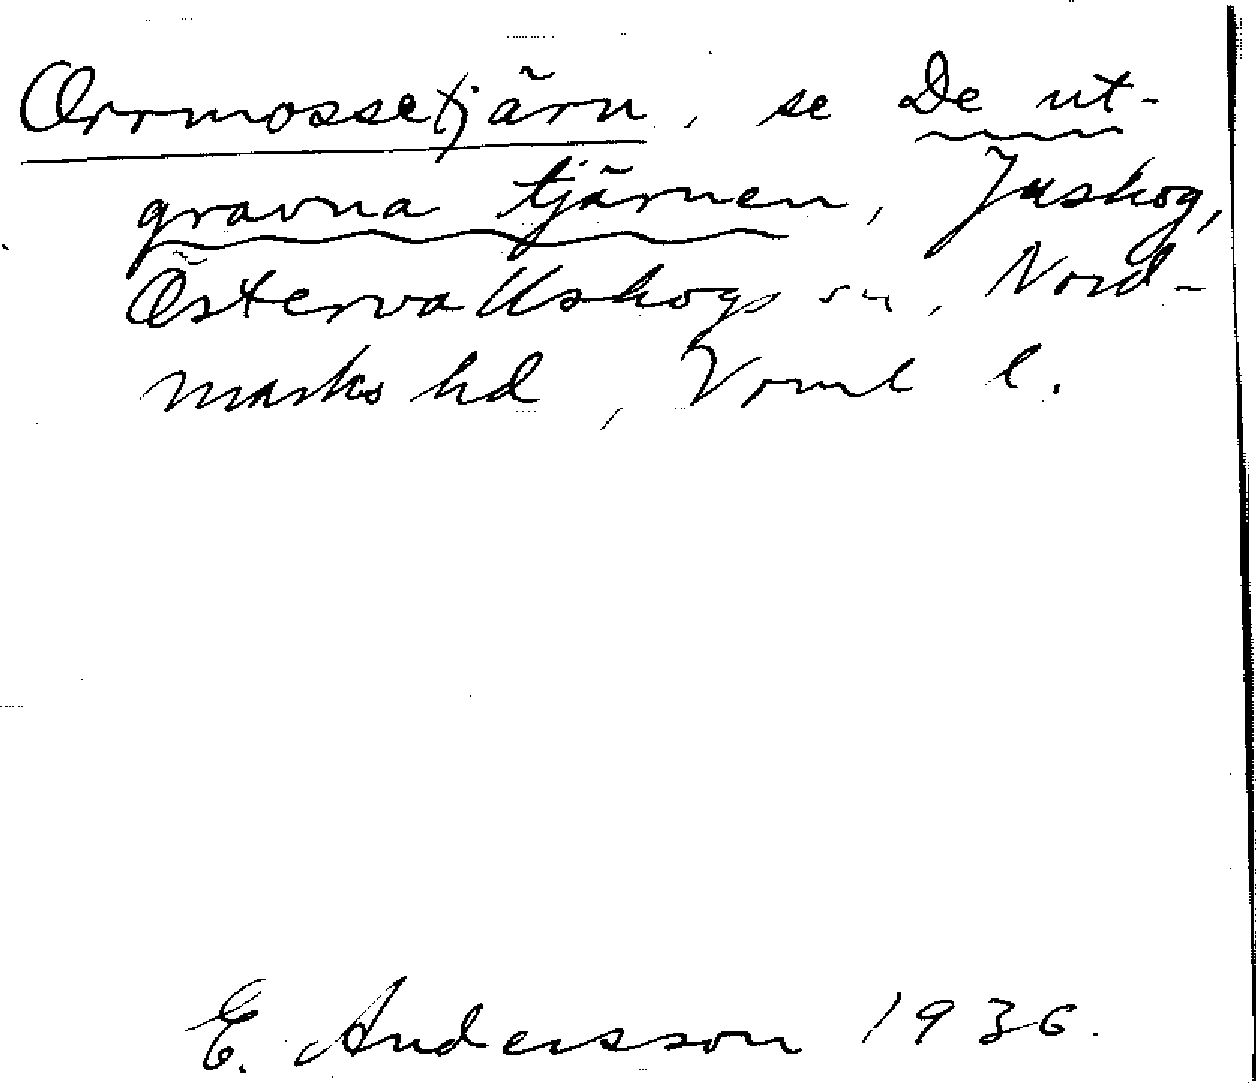 Orrmossetjärn, se De ut-
gravna tjärnen, Juskog,
Östervallskogs sn, Nord-
marks hd, Verml l.
E. Andersson 1936.